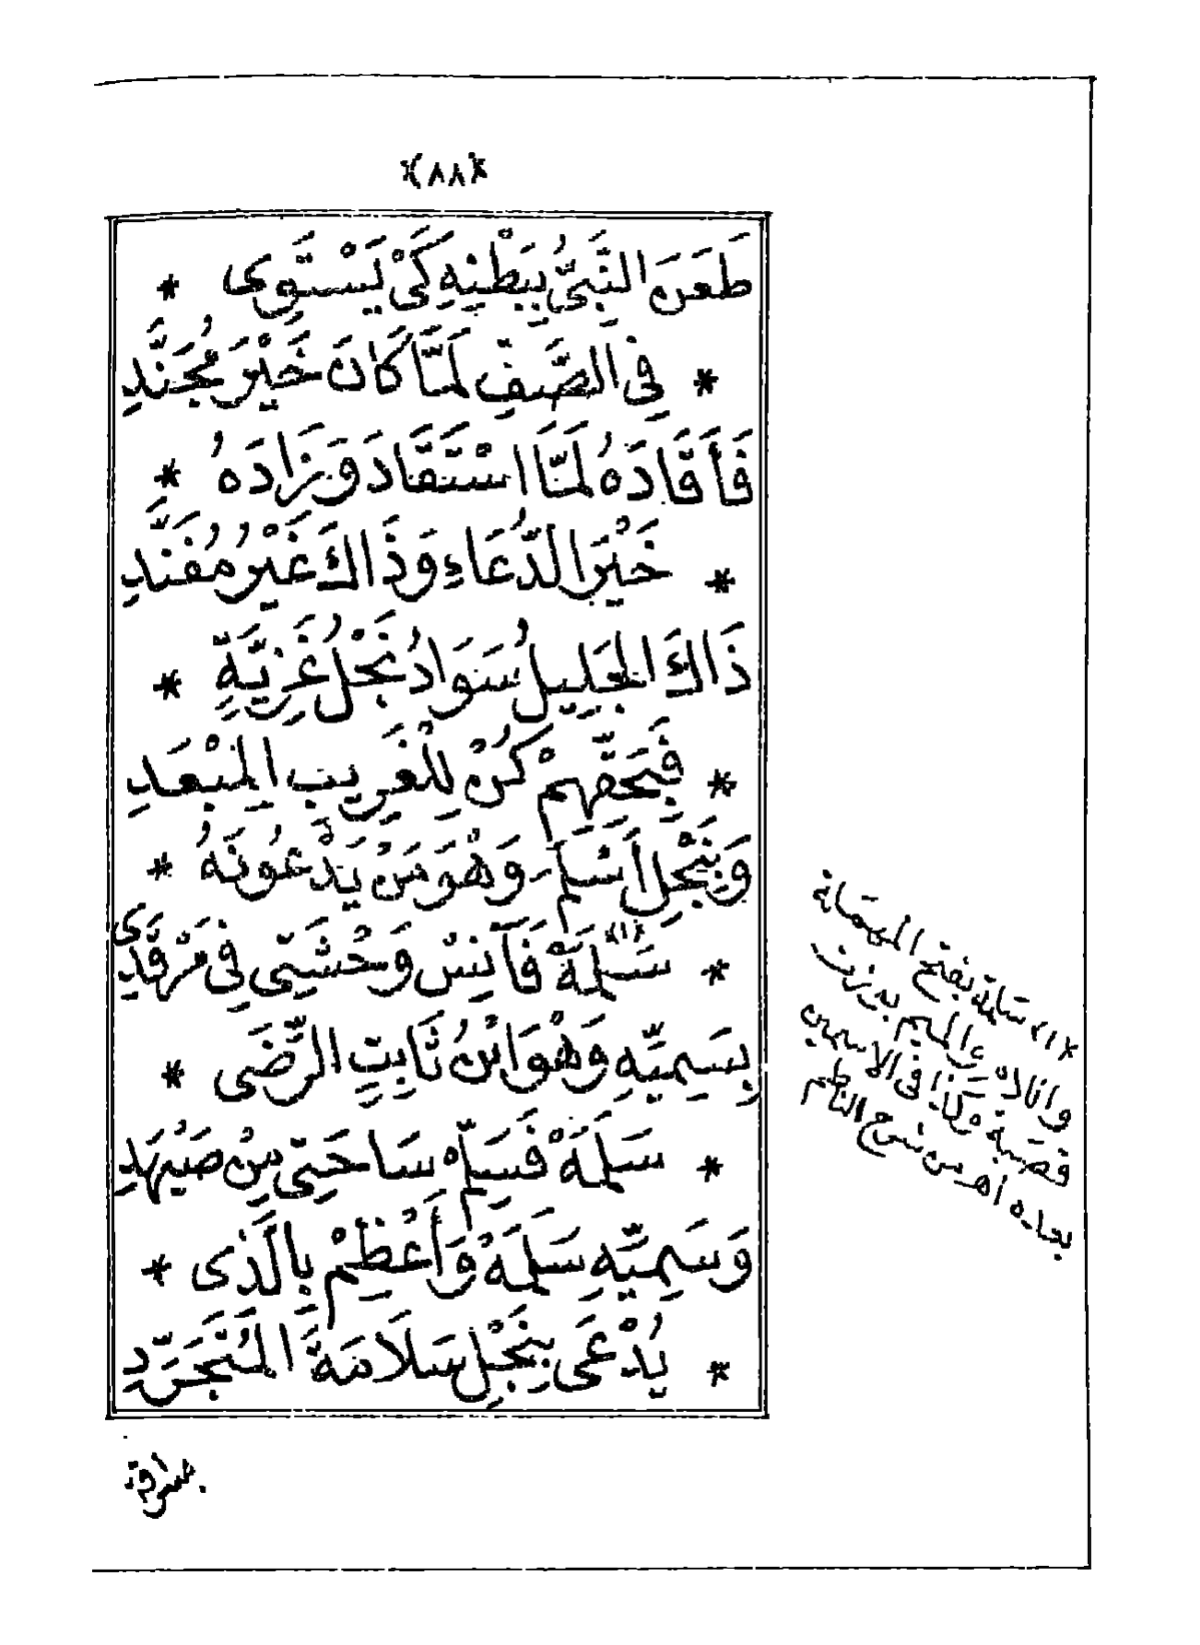 *(٨٨)*
طَعَنَ النَّبِىُّ بِبَطْنِهِ كَىْ يَسْتَوِى *
* فِى الصَّفِّ لَمَّا كَانَ خَيْرَ مُجَنَّدِ
فَأَقَادَهُ لَمَّا اسْتَقَادَ وَزَادَهُ *
* خَيْرَ الدُّعَاءِ وَذَاكَ غَيْرُ مُفَنَّدِ
ذَاكَ الْجَلِيلُ سَوَادُ نَجْلُ غَزِيَّةٍ *
* فَبِحَقِّهِمْ كُنْ لِلْغَرِيبِ الْمُبْعَدِ
وَبِنَجْلِ أَسْلَمَ وَهْوَ مَنْ يَدْعُونَهُ *
* سَلَمَةْ (١) فَآنِسْ وَحْشَتِى فِى مَرْقَدِى
بِسَمِيِّهِ وَهْوَ ابْنُ ثَابِتٍ الرِّضَى *
* سَلَمَةْ فَسَلِّمْ سَاحَتِى مِنْ صَيْهَدِ
وَسَمِيِّهِ سَلَمَةْ وَأَعْظِمْ بِالَّذِى *
* يُدْعَى بِنَجْلِ سَلَامَةَ الْمُتَجَرِّدِ
*(١) سَلمة بفتح المهملة
واللام والميم بوزن
قصبة وكذا فى الاسمين
بعده اهـ من شرح الناظم
بسراقة